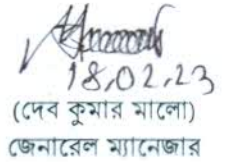 18.02.23
(দেব কুমার মালো)
জেনারেল ম্যানেজার